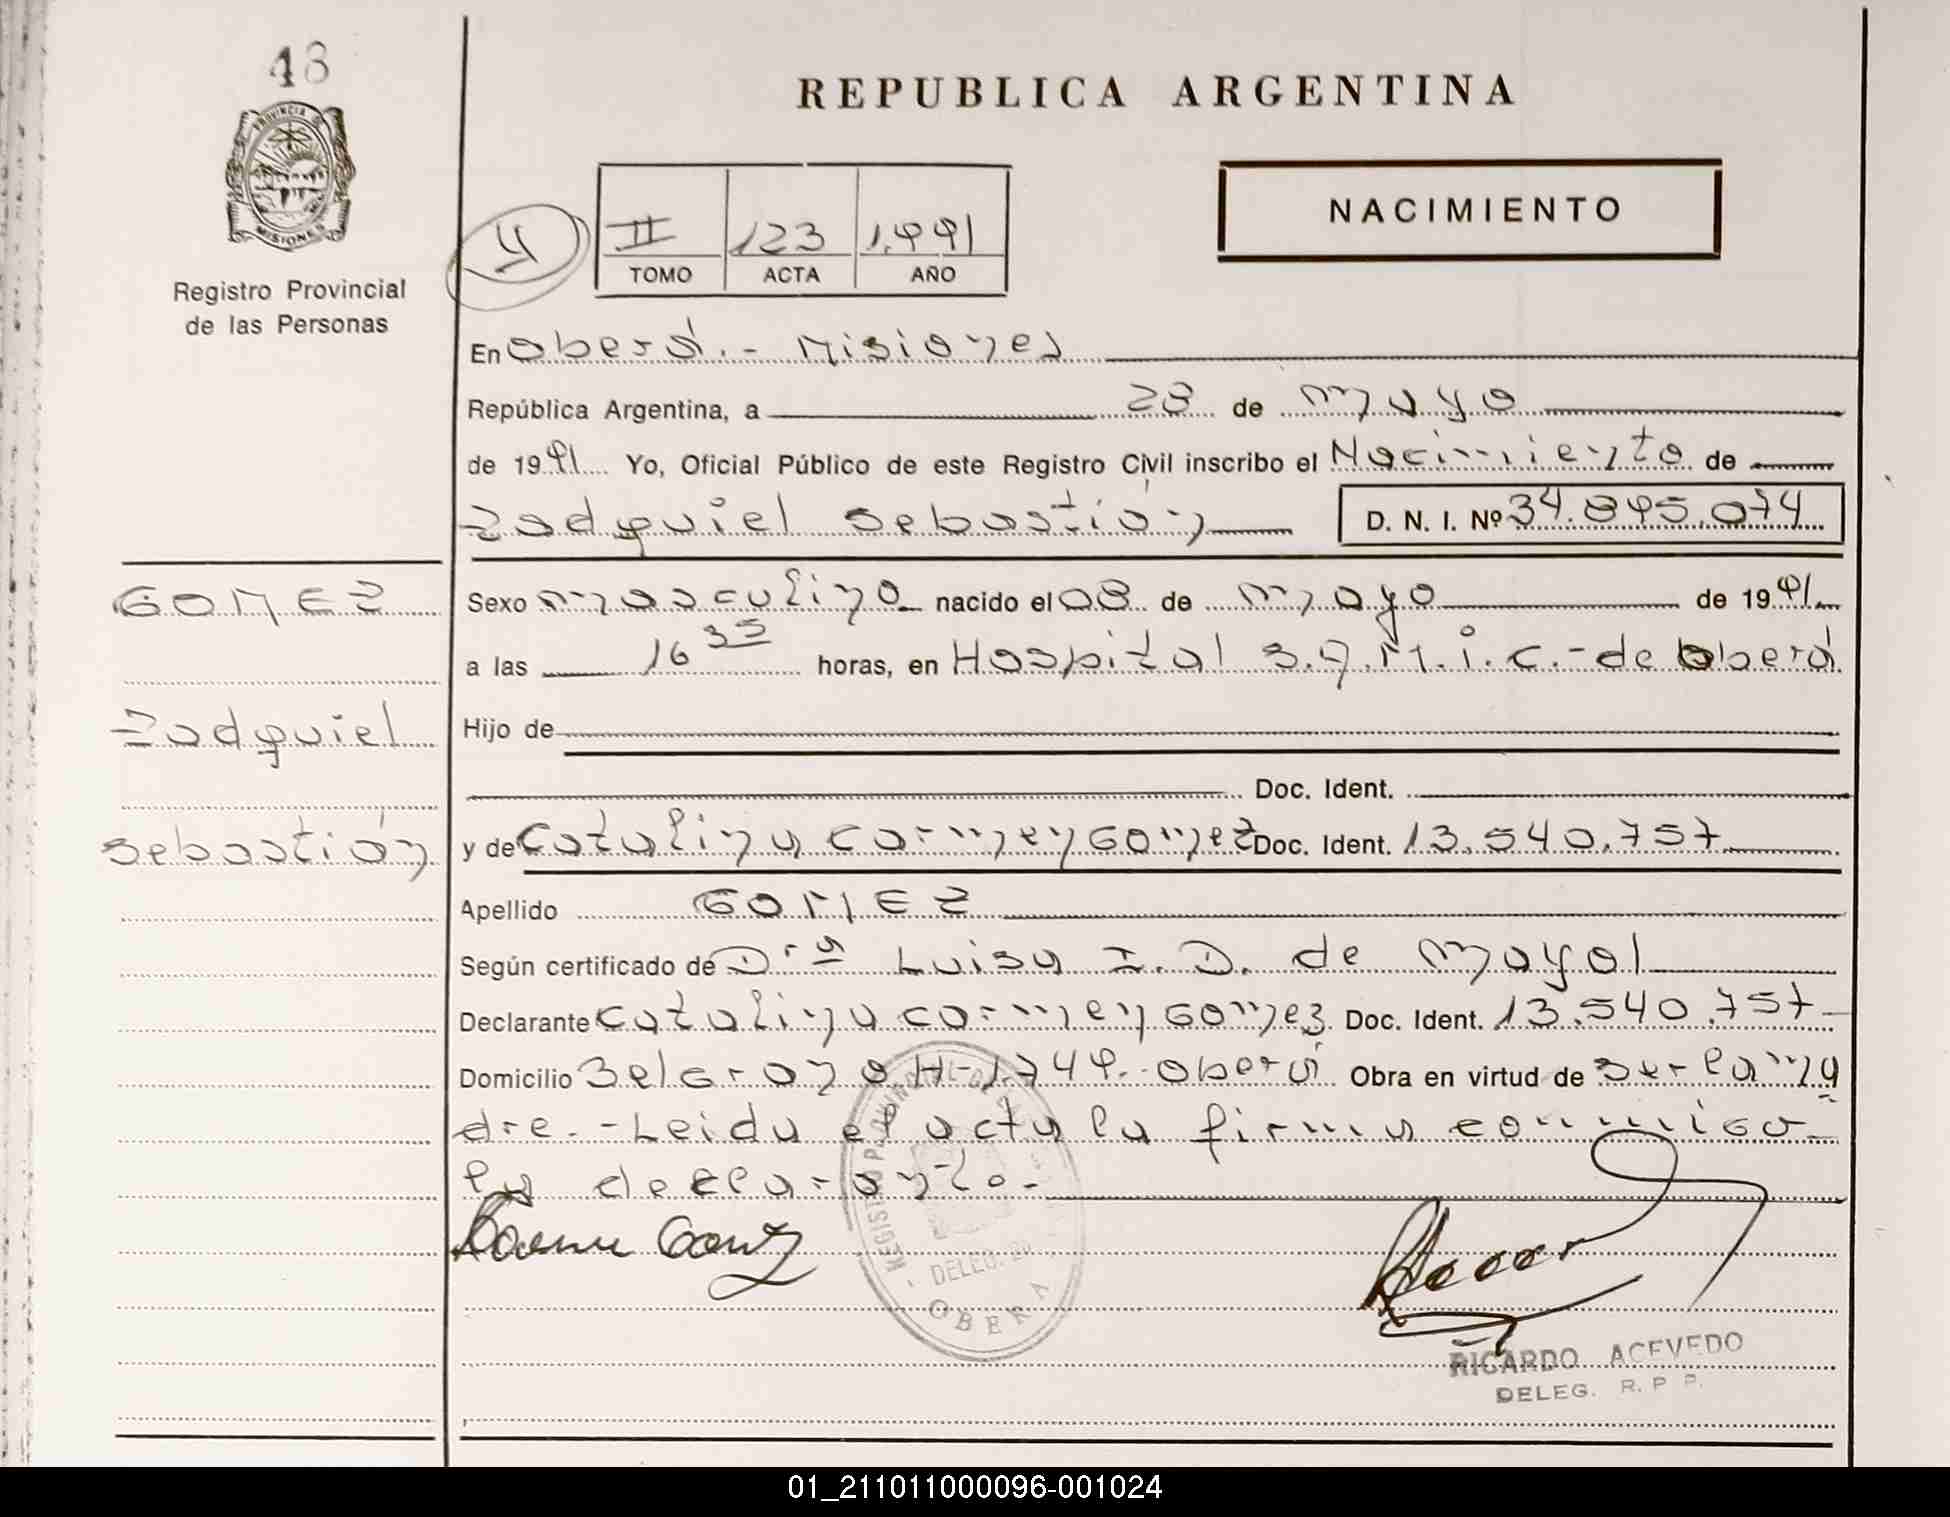 48
REPUBLICA ARGENTINA
PROVINCIA DE
MISIONES
Registro Provincial
de las Personas
II 123 1.991
TOMO ACTA AÑO
NACIMIENTO
En Oberá.- Misiones
República Argentina, a 28 de mayo
de 1991 Yo, Oficial Público de este Registro Civil inscribo el Nacimiento de
Zadquiel Sebastián D. N. I. Nº 34.895.074
GOMEZ
Zadquiel
Sebastián
Sexo masculino nacido el 08 de mayo de 1991
a las 16 35 horas, en Hospital S.A.M.i.c.- de Oberá
Hijo de
Doc. Ident.
y de Catalina Carmen Gomez Doc. Ident. 13.540.757
Apellido GOMEZ
Según certificado de Drª Luisa I. D. de Mayol
Declarante Catalina Carmen Gomez Doc. Ident. 13.540.757
Domicilio Belgrano Nº 1.749.- Oberá Obra en virtud de ser la ma
dre.- Leida el acta la firma conmigo
la declarante.-
REGISTRO PROVINCIAL DE
DELEG.
OBERA
RICARDO ACEVEDO
DELEG. R. P. P.
01_211011000096-001024